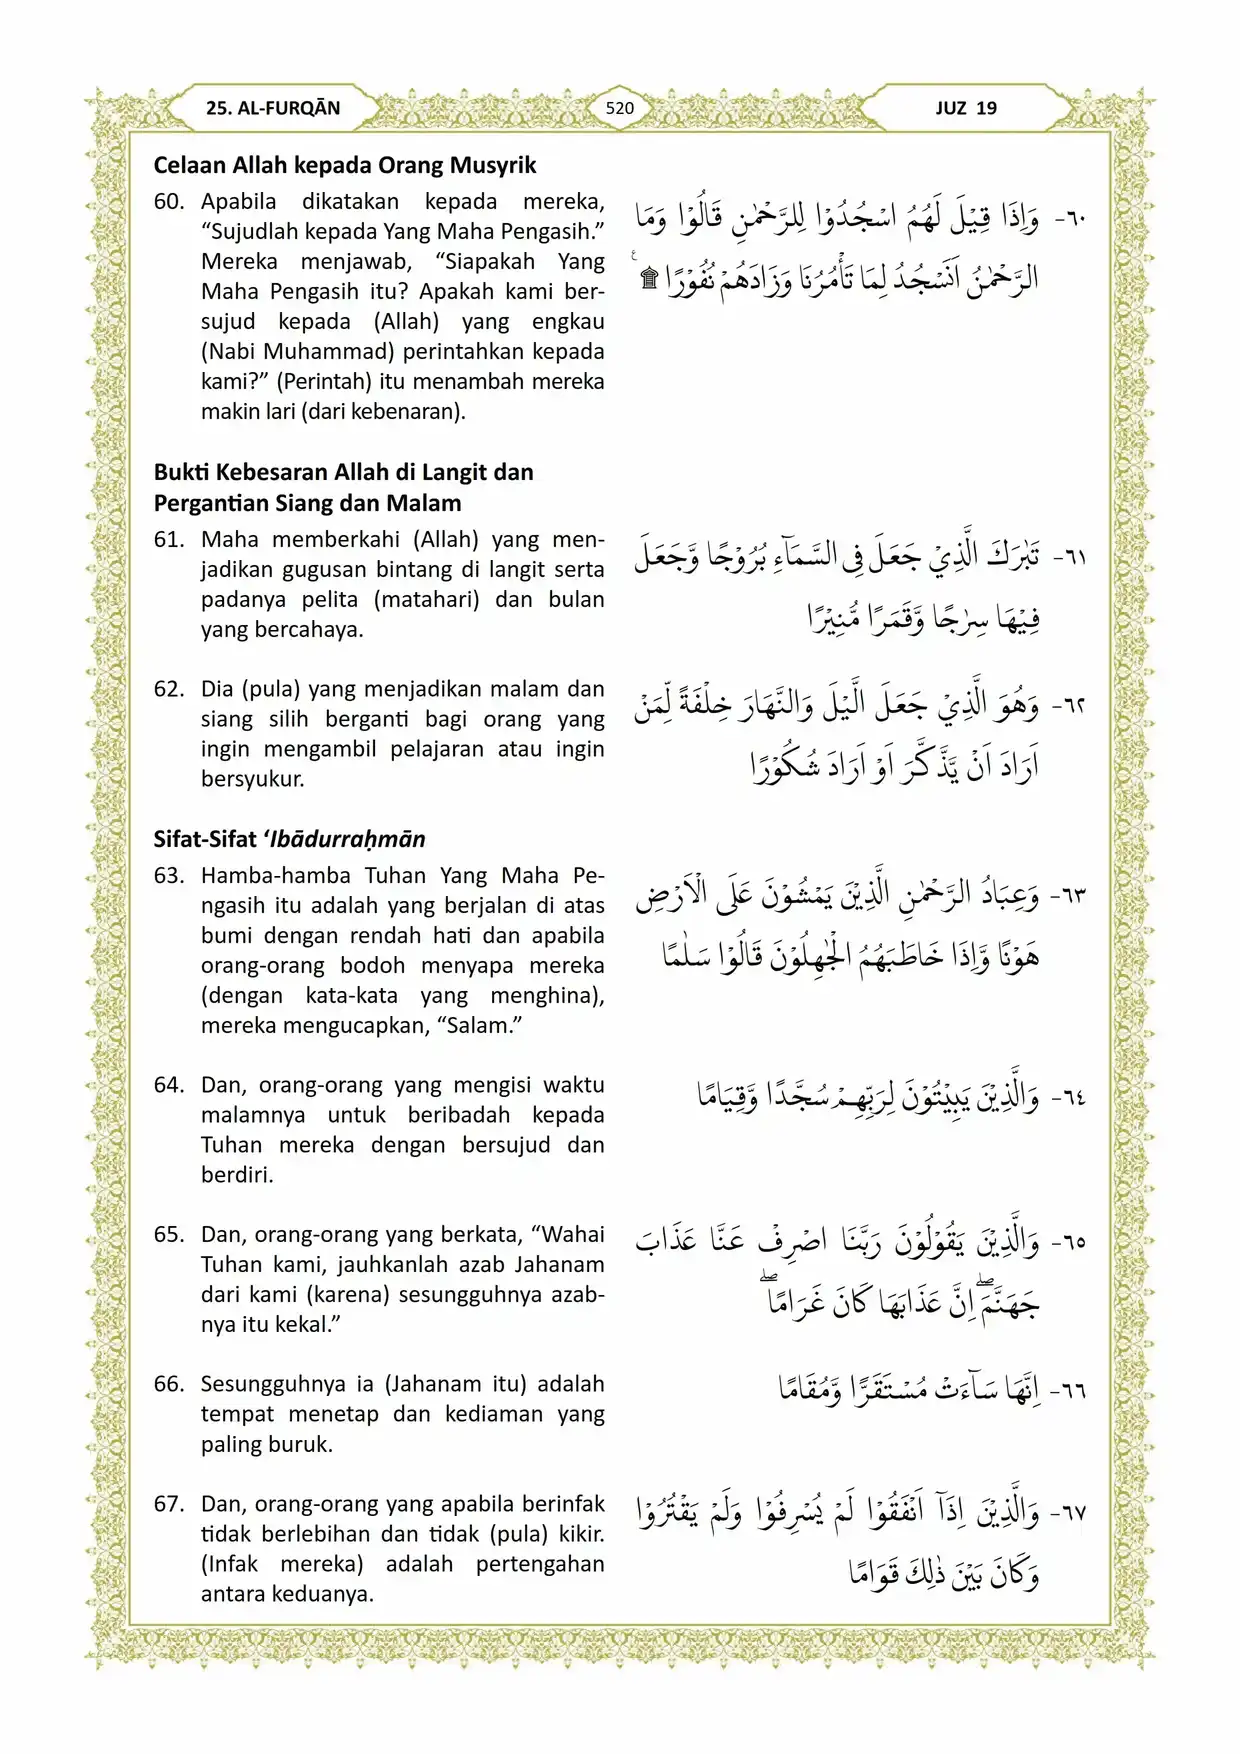 25. AL-FURQĀN
520
JUZ 19
Celaan Allah kepada Orang Musyrik
60. Apabila dikatakan kepada mereka,
“Sujudlah kepada Yang Maha Pengasih.”
Mereka menjawab, “Siapakah Yang
Maha Pengasih itu? Apakah kami ber-
sujud kepada (Allah) yang engkau
(Nabi Muhammad) perintahkan kepada
kami?” (Perintah) itu menambah mereka
makin lari (dari kebenaran).
٦٠- وَاِذَا قِيْلَ لَهُمُ اسْجُدُوْا لِلرَّحْمٰنِ قَالُوْا وَمَا
الرَّحْمٰنُ اَنَسْجُدُ لِمَا تَأْمُرُنَا وَزَادَهُمْ نُفُوْرًا ۩ ࣖ
Bukti Kebesaran Allah di Langit dan
Pergantian Siang dan Malam
61. Maha memberkahi (Allah) yang men-
jadikan gugusan bintang di langit serta
padanya pelita (matahari) dan bulan
yang bercahaya.
٦١- تَبٰرَكَ الَّذِيْ جَعَلَ فِى السَّمَاۤءِ بُرُوْجًا وَّجَعَلَ
فِيْهَا سِرٰجًا وَّقَمَرًا مُّنِيْرًا
62. Dia (pula) yang menjadikan malam dan
siang silih berganti bagi orang yang
ingin mengambil pelajaran atau ingin
bersyukur.
٦٢- وَهُوَ الَّذِيْ جَعَلَ الَّيْلَ وَالنَّهَارَ خِلْفَةً لِّمَنْ
اَرَادَ اَنْ يَّذَّكَّرَ اَوْ اَرَادَ شُكُوْرًا
Sifat-Sifat ‘Ibādurraḥmān
63. Hamba-hamba Tuhan Yang Maha Pe-
ngasih itu adalah yang berjalan di atas
bumi dengan rendah hati dan apabila
orang-orang bodoh menyapa mereka
(dengan kata-kata yang menghina),
mereka mengucapkan, “Salam.”
٦٣- وَعِبَادُ الرَّحْمٰنِ الَّذِيْنَ يَمْشُوْنَ عَلَى الْاَرْضِ
هَوْنًا وَّاِذَا خَاطَبَهُمُ الْجٰهِلُوْنَ قَالُوْا سَلٰمًا
64. Dan, orang-orang yang mengisi waktu
malamnya untuk beribadah kepada
Tuhan mereka dengan bersujud dan
berdiri.
٦٤- وَالَّذِيْنَ يَبِيْتُوْنَ لِرَبِّهِمْ سُجَّدًا وَّقِيَامًا
65. Dan, orang-orang yang berkata, “Wahai
Tuhan kami, jauhkanlah azab Jahanam
dari kami (karena) sesungguhnya azab-
nya itu kekal.”
٦٥- وَالَّذِيْنَ يَقُوْلُوْنَ رَبَّنَا اصْرِفْ عَنَّا عَذَابَ
جَهَنَّمَۖ اِنَّ عَذَابَهَا كَانَ غَرَامًاۖ
66. Sesungguhnya ia (Jahanam itu) adalah
tempat menetap dan kediaman yang
paling buruk.
٦٦- اِنَّهَا سَاۤءَتْ مُسْتَقَرًّا وَّمُقَامًا
67. Dan, orang-orang yang apabila berinfak
tidak berlebihan dan tidak (pula) kikir.
(Infak mereka) adalah pertengahan
antara keduanya.
٦٧- وَالَّذِيْنَ اِذَآ اَنْفَقُوْا لَمْ يُسْرِفُوْا وَلَمْ يَقْتُرُوْا
وَكَانَ بَيْنَ ذٰلِكَ قَوَامًا